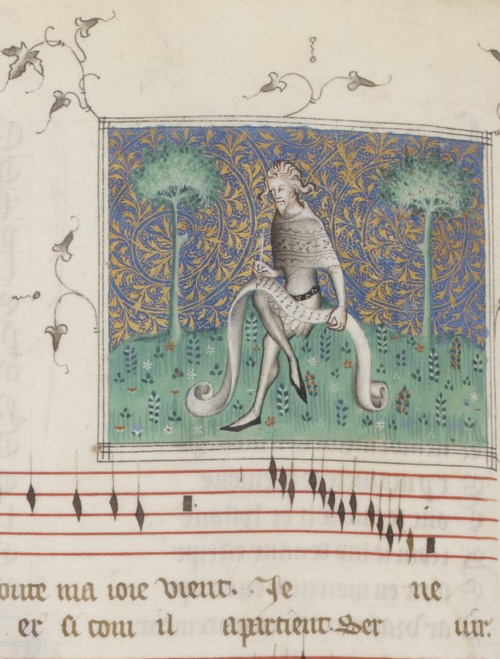 oute ma ioie vient. Je ne
er si com il apartient. Ser uir.